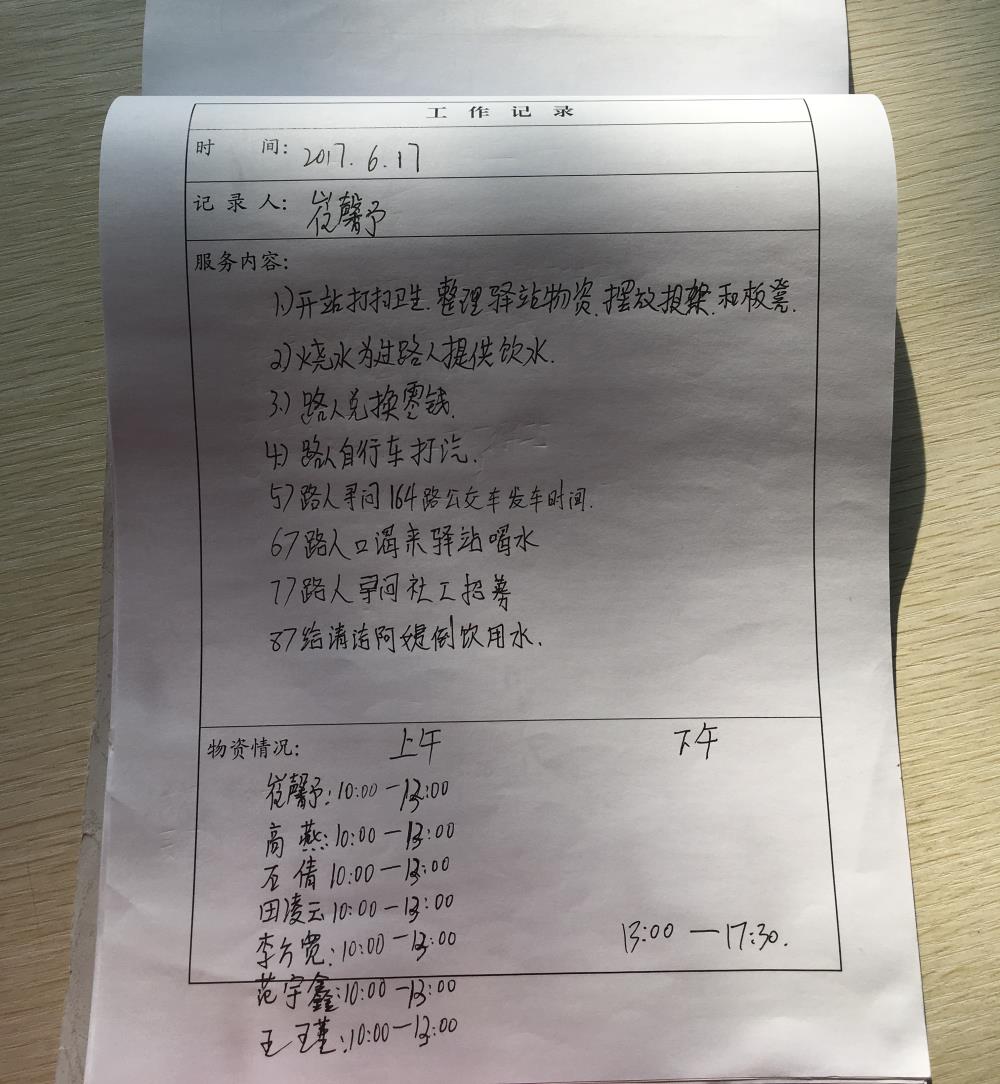 工作记录
时 间: 2017.6.17
记录人: 崔馨予
服务内容:
1.)开站打扫卫生.整理驿站物资.摆放报架.和板凳.
2)烧水为过路人提供饮水.
3.)路人兑换零钱.
4)路人自行车打汽.
5)路人寻问164路公交车发车时间.
6)路人口渴来驿站喝水
7)路人寻问社工招募
8)给清洁阿姨倒饮用水.
物资情况: 上午 下午
崔馨予:10:00—13:00
高燕:10:00—13:00
石倩10:00—13:00
田凌云10:00—13:00
李方宽:10:00—13:00 13:00—17:30.
范宇鑫:10:00—13:00
王瑾:10:00—13:00